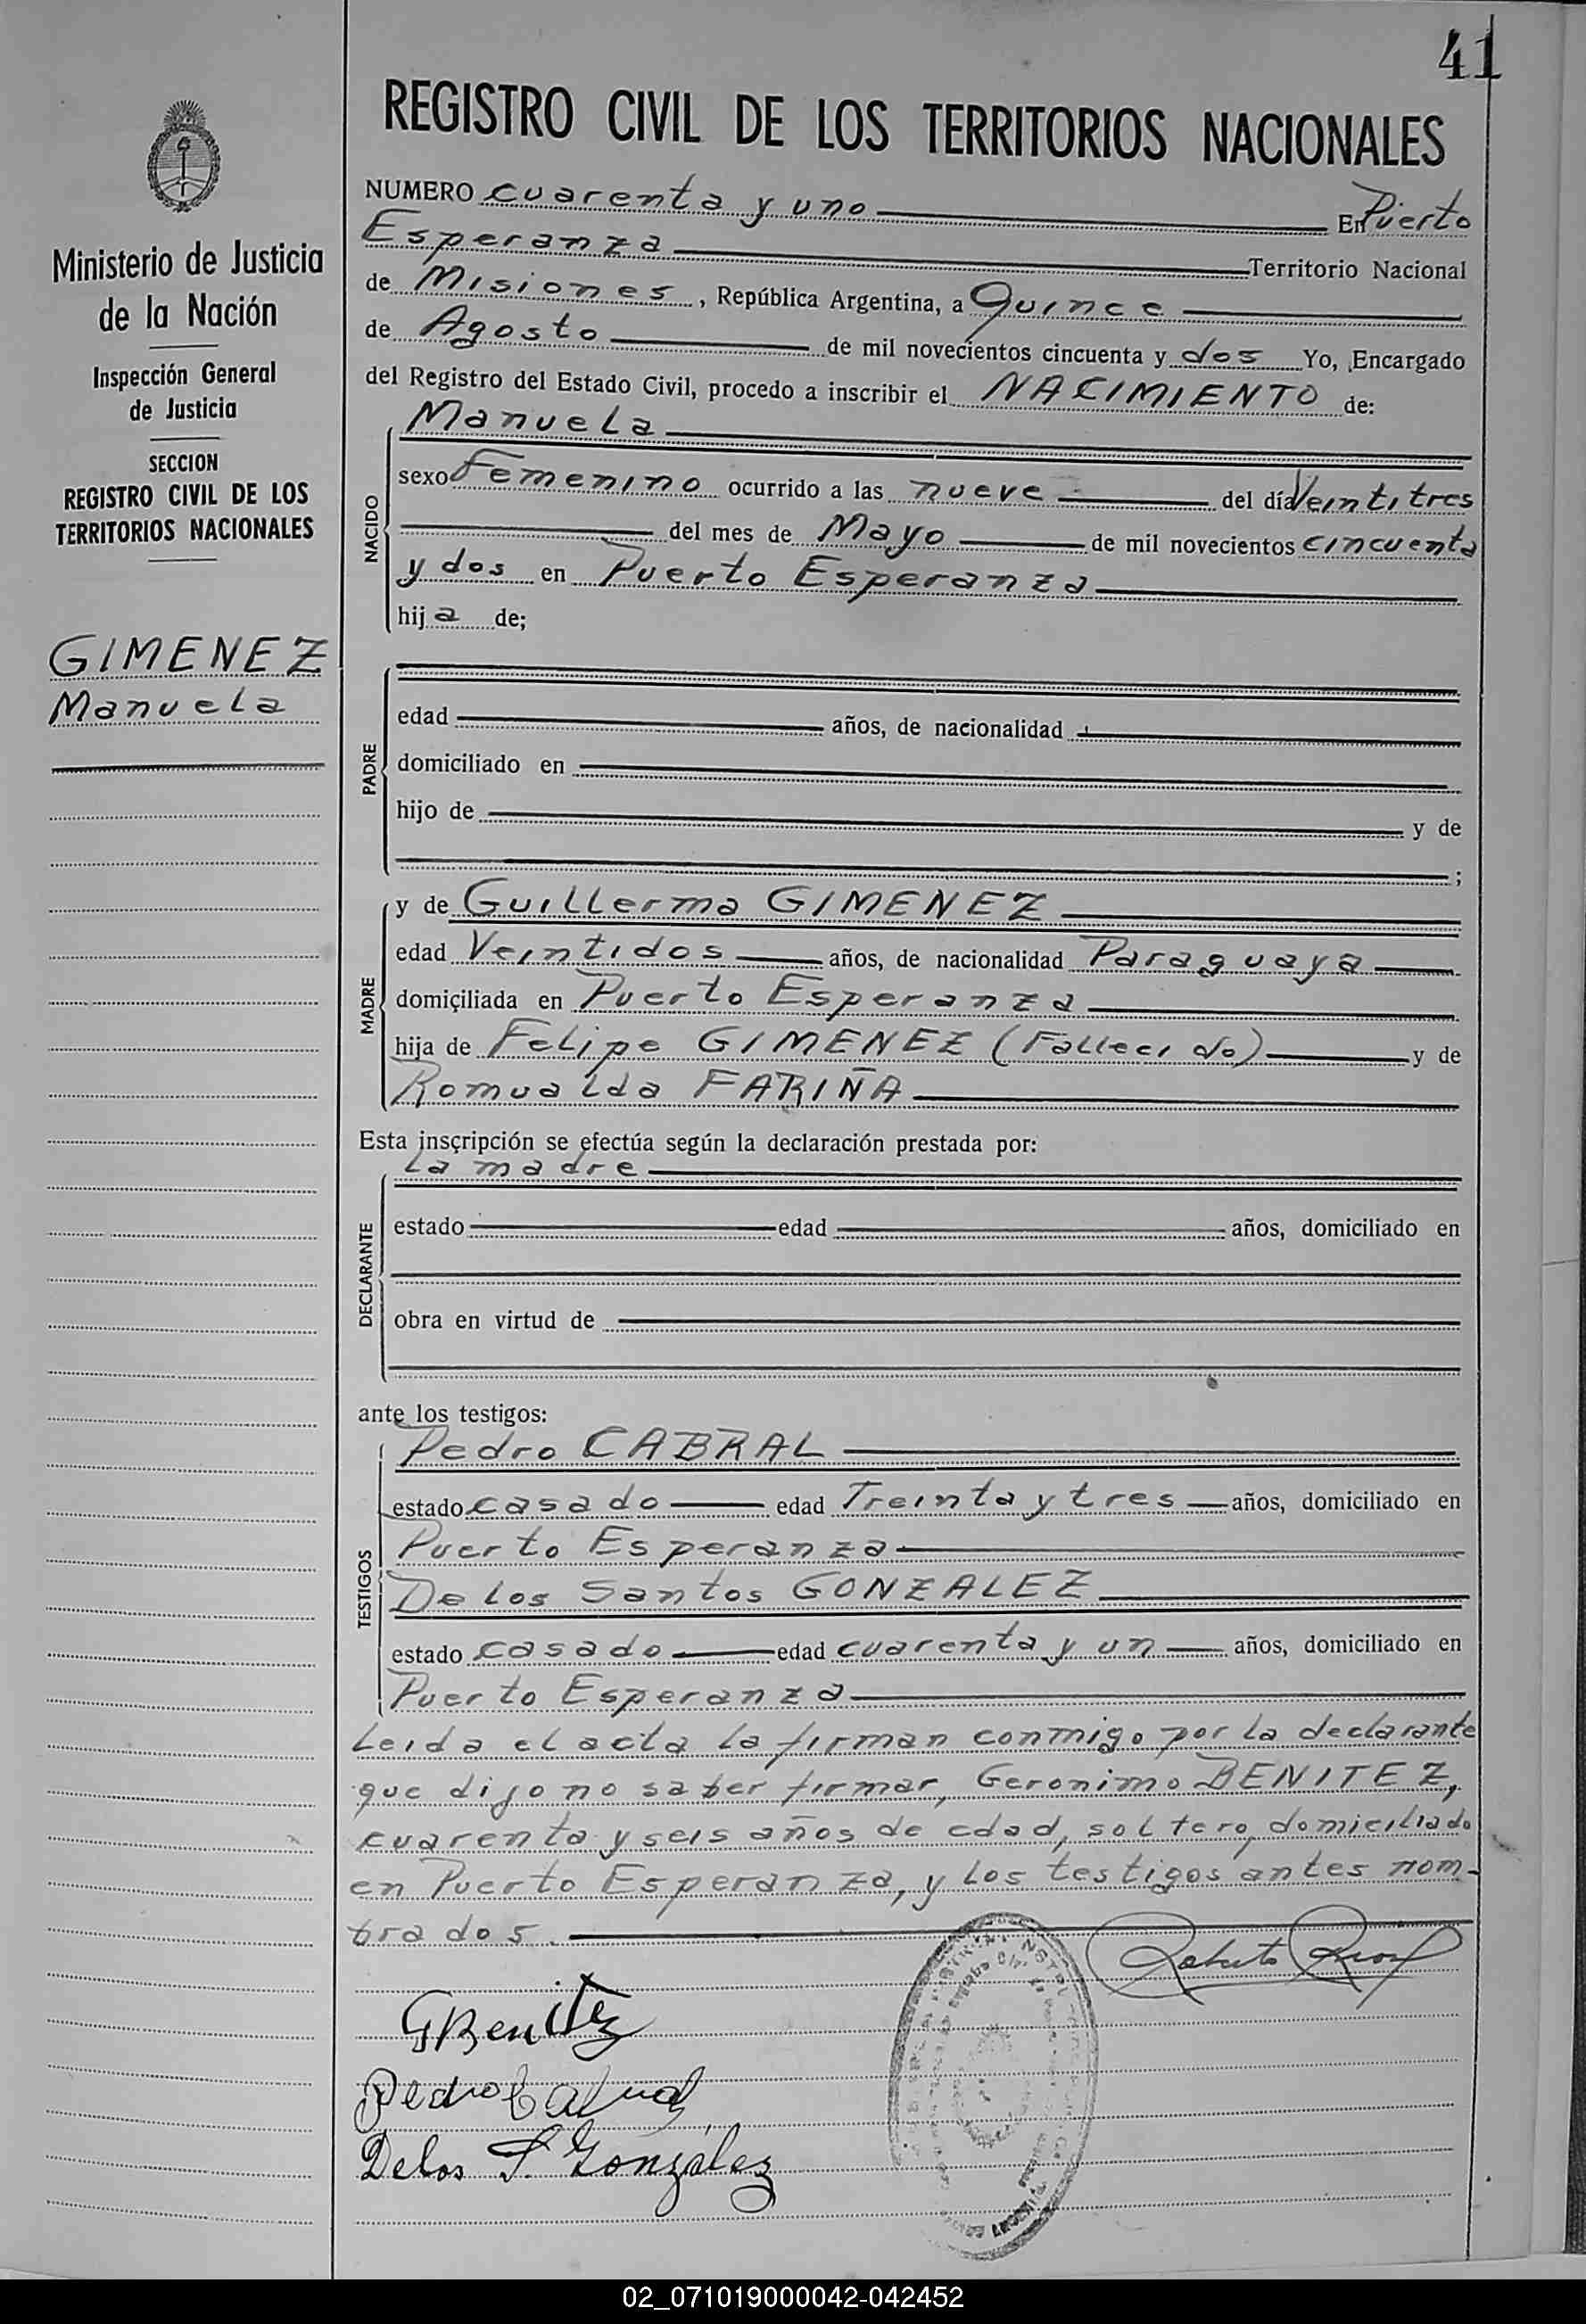 41
REGISTRO CIVIL DE LOS TERRITORIOS NACIONALES
Ministerio de Justicia
de la Nación
Inspección General
de Justicia
SECCION
REGISTRO CIVIL DE LOS
TERRITORIOS NACIONALES
GIMENEZ
Manuela
NUMERO cuarenta y uno En Puerto
Esperanza Territorio Nacional
de Misiones, República Argentina, a Quince
de Agosto de mil novecientos cincuenta y dos Yo, Encargado
del Registro del Estado Civil, procedo a inscribir el NACIMIENTO de:
NACIDO
Manuela
sexo Femenino ocurrido a las nueve del día Veintitres
del mes de Mayo de mil novecientos cincuenta
y dos en Puerto Esperanza
hija de;
PADRE
edad años, de nacionalidad
domiciliado en
hijo de y de
;
MADRE
y de Guillerma GIMENEZ
edad Veintidos años, de nacionalidad Paraguaya
domiciliada en Puerto Esperanza
hija de Felipe GIMENEZ (Fallecido) y de
Romualda FARIÑA
Esta inscripción se efectúa según la declaración prestada por:
DECLARANTE
la madre
estado edad años, domiciliado en
obra en virtud de
ante los testigos:
TESTIGOS
Pedro CABRAL
estado casado edad Treinta y tres años, domiciliado en
Puerto Esperanza
De los Santos GONZALEZ
estado casado edad cuarenta y un años, domiciliado en
Puerto Esperanza
Leida el acta la firman conmigo por la declarante
que dijo no saber firmar, Geronimo BENITEZ,
cuarenta y seis años de edad, soltero, domiciliado
en Puerto Esperanza, y los testigos antes nom-
brados.
Roberto
GBenitez
Pedro Cabral
Delos S. González
02_071019000042-042452